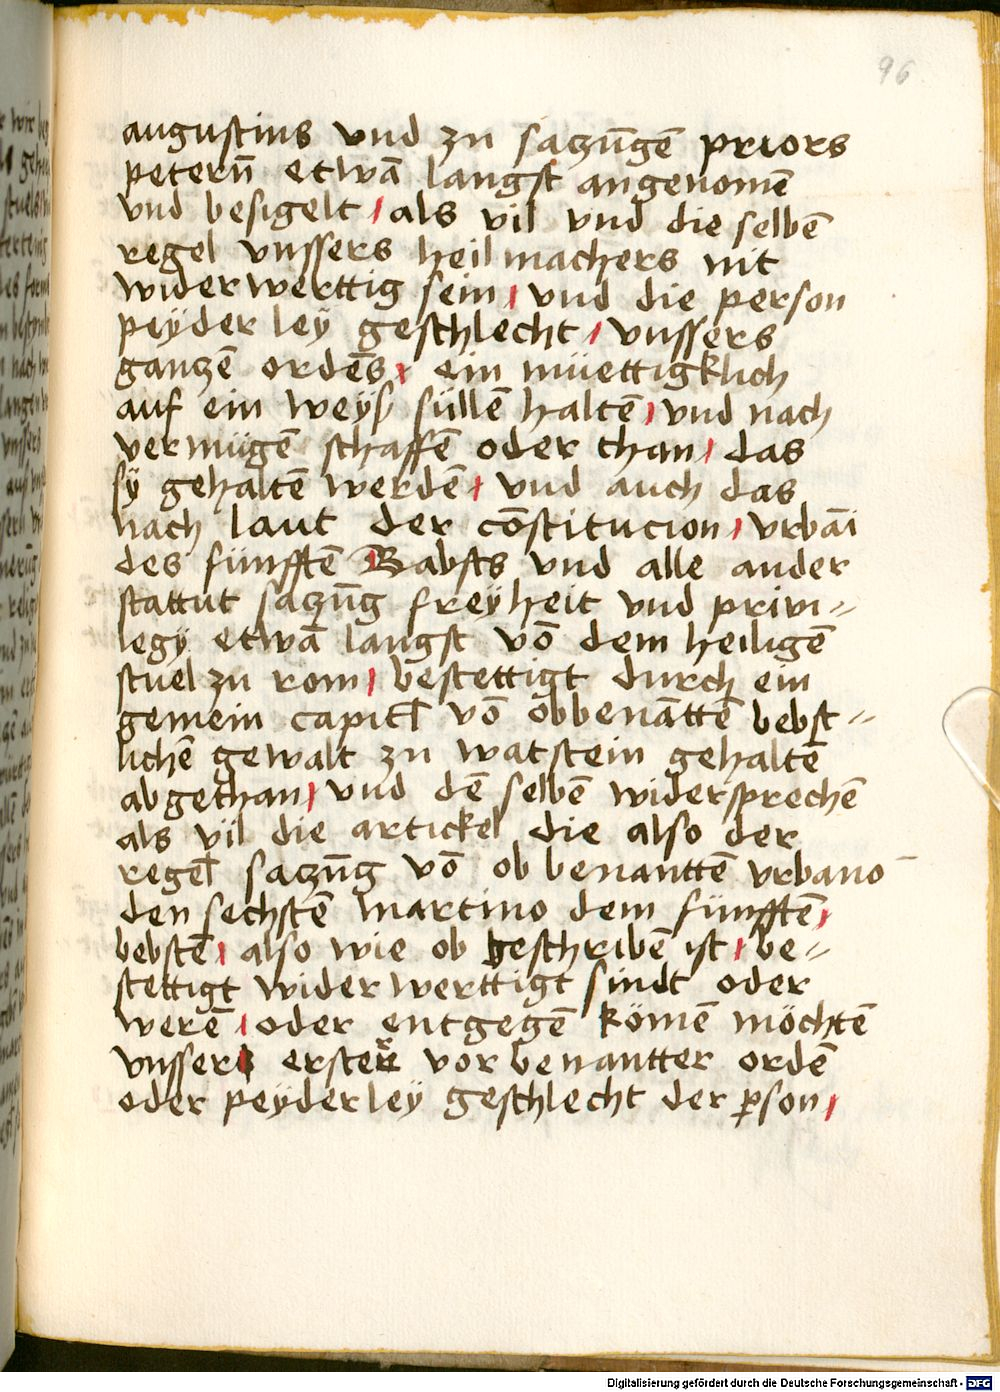 96
augustins vnd zu saczūgē priors
petern̄ etwā langst angenomē
vnd besigelt / als vil vnd die selbē
regel vnssers heilmachers nit
widerwerttig sein / vnd die person
peÿder leÿ geschlecht / vnssers
ganczē ordēs / ein müettigklich
auf ein weÿß süllē haltē / vnd nach
vermügē schaffē oder than / das
sÿ gehaltē werdē / vnd auch das
nach laut der cōstitucion / vrbāi
des fünfftē Babsts vnd alle ander
stattut saczūg freÿheit vnd privi„
legÿ etwā langst vō dem heiligē
stuel zu rom / bestettigt durch ein
gemein capitl̄ vō obbenāttē bebst„
lichē gewalt zu watstein gehaltē
abgethan / vnd dē selbē widersprechē
als vil die artickel die also der
regel̄ saczūg vō ob benanttē vrbano
den sechstē martino dem fünfftē /
bebstē / also wie ob beschribē ist / be„
stettigt widerwerttigt sindt oder
werē / oder entgegē kömē möchtē
vnsser erster vor benantter ordē
oder peÿderleÿ geschlecht der ꝑson /
Digitalisierung gefördert durch die Deutsche Forschungsgemeinschaft - DFG